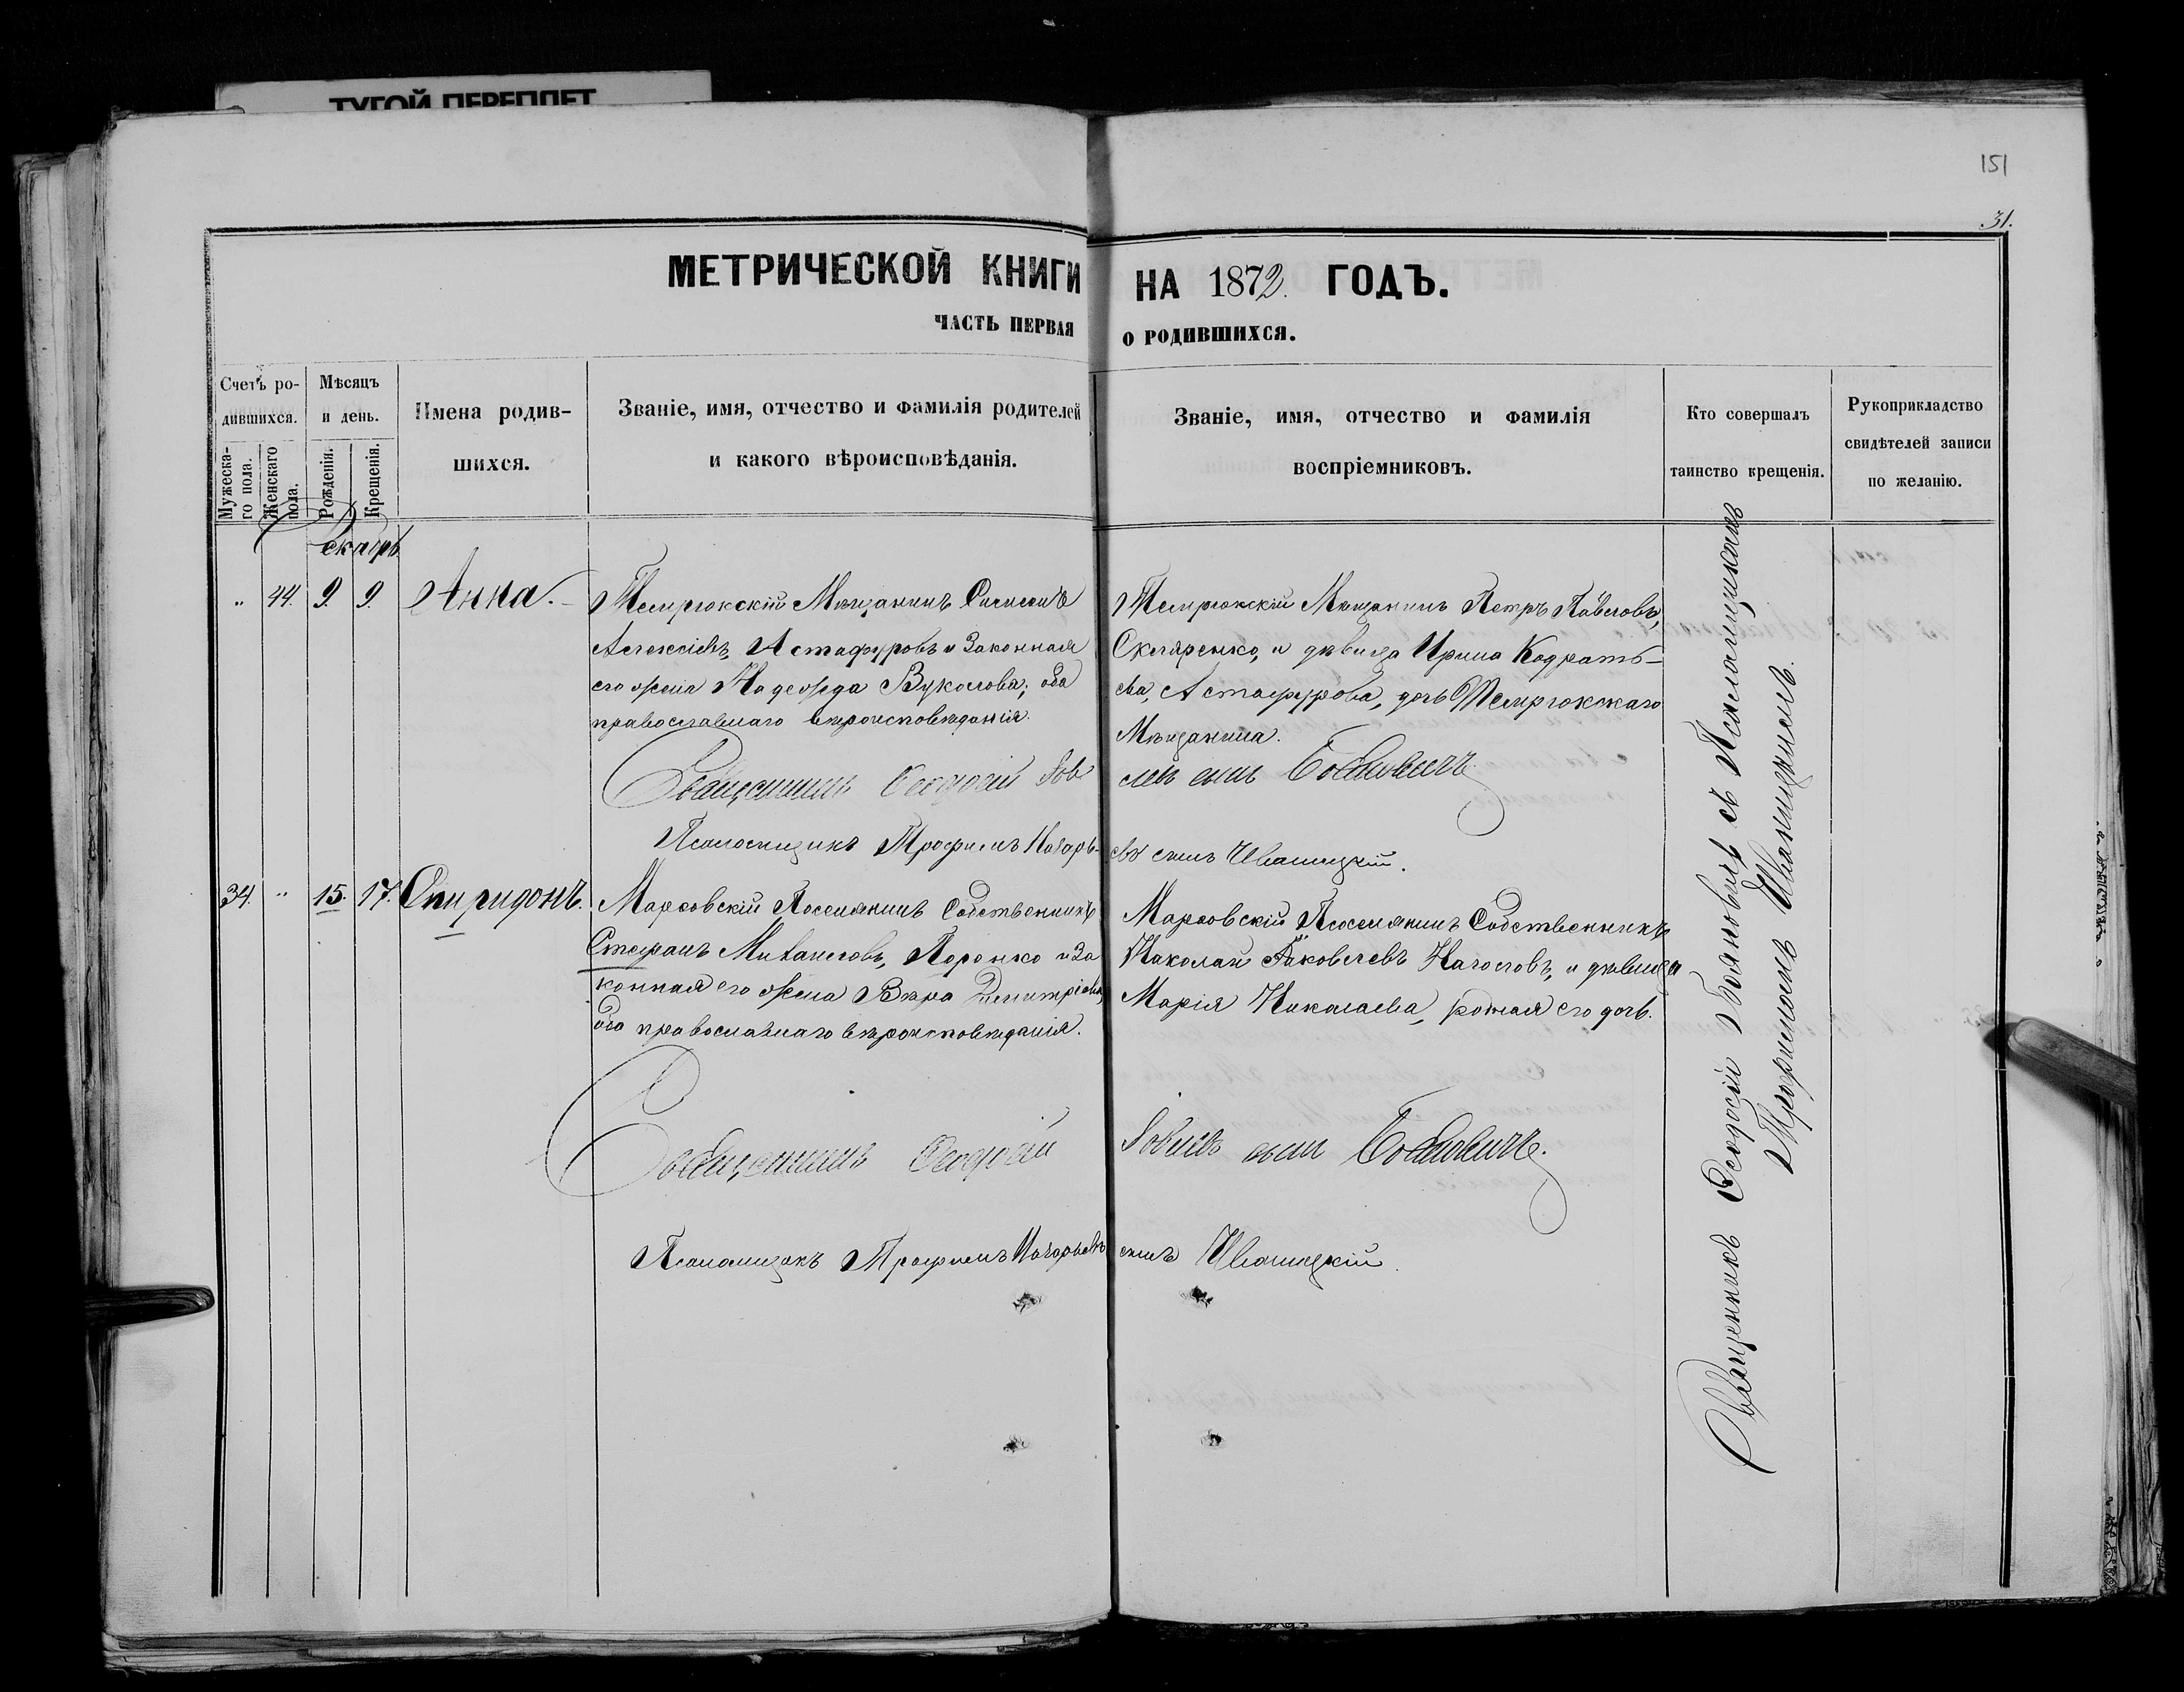 ТУГОЙ ПЕРЕПЛЕТ
151
31.
МЕТРИЧЕСКОЙ КНИГИ НА 1872 ГОДЪ.
ЧАСТЬ ПЕРВАЯ О РОДИВШИХСЯ.
Счетъ ро-
дившихся.
Мужеска-
го пола.
Женскаго
пола.
Мѣсяцъ
и день.
Рожденія.
Крещенія.
Имена родив-
шихся.
Званіе, имя, отчество и фамилія родителей
и какого вѣроисповѣданія.
Званіе, имя, отчество и фамилія
воспріемниковъ.
Кто совершалъ
таинство крещенія.
Рукоприкладство
свидѣтелей записи
по желанію.
Декабрь
" 44. 9. 9. Анна.
Темрюкскій Мѣщанинъ
Алексѣевъ, Астафуровъ и Законная
его жена Надежда Вуколова; оба
православнаго вѣроисповѣданія.
Темрюкскій Мѣщанинъ Петръ Павловъ,
Скляренко, и дѣвица Ирина Кодрать-
ева, Астафурова, дочь Темрюкскаго
Мѣщанина.
Священникъ Ѳеодосій Іовлевъ сынъ Бояновичъ
Псаломщикъ Трофимъ Назарьевъ сынъ Иваницкій.
34. " 15. 17. Спиридонъ.
Марковскій Поселянинъ Собственникъ
Стефанъ Михаиловъ, Норенко и За
конная его жена Вѣра Димитріева,
оба православнаго вѣроисповѣданія.
Марковскій Поселянинъ Собственникъ
Николай Яковлевъ и дѣвица
Марія Николаева, родная его дочь.
Священникъ Ѳеодосій Іовлевъ сынъ Бояновичъ.
Псаломщикъ Трофимъ Назарьевъ сынъ Иваницкій.
Священникъ Ѳеодосій Бояновичъ съ Псаломщикомъ
Трофимомъ Иваницкимъ.